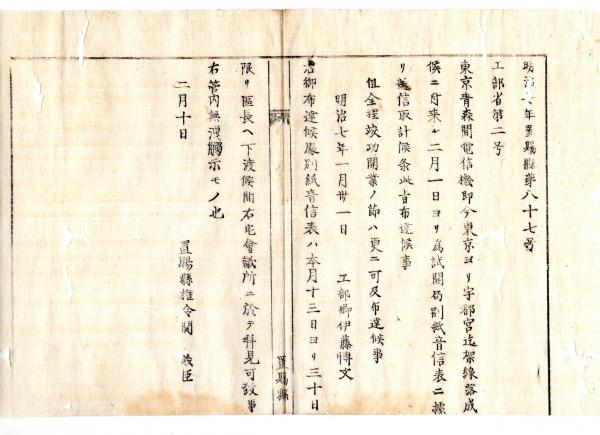 明治七年置賜縣第八十七号
工部省第二号
東京青森間電信機即今東京ヨリ宇都宮迄架線落成
候ニ付来ル二月一日ヨリ為試開局別紙音信表ニ據
リ差信取計候条此旨布達候事
但全程竣功開業ノ節ハ更ニ可及布達候事
明治七年一月卅一日 工部卿伊藤博文
置賜縣
右御布達候處別紙音信表ハ本月十三日ヨリ三十日
限リ區長ヘ下渡候間右宅會議所ニ於テ拝見可致事
右管内無洩觸示モノ也
二月十日
置賜縣権令関 義臣